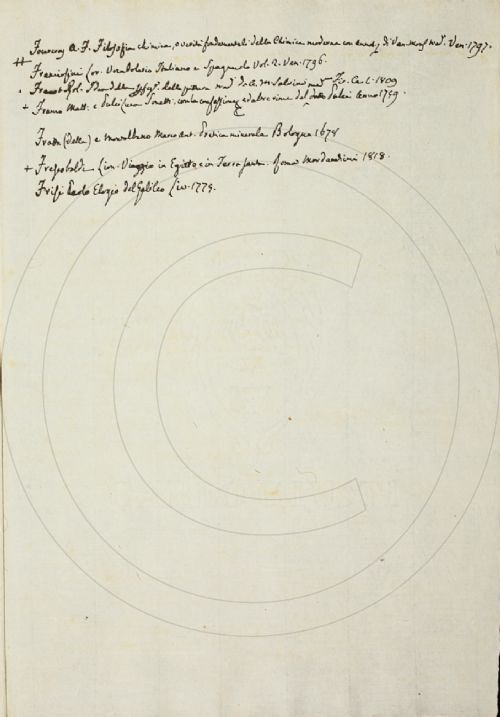 Fourcroy A. F. Filosofia chimica, o verità fondamentali della Chimica moderna con annot. di Van-Mons Ven. 1797.
++ Franciosini Lor. Vocabolario Italiano e Spagnuolo Vol. 2. Ven. 1796.
. Idea della pittura trad. da A. M. Salvini 1809
+ Franco Matt. e Pulci Luca Sonetti, con la confessione ed altre rime del detto Pulci Anno 1759.
Fratta (della) e Montalbano Marco Ant. Pratica minerale Bologna 1678
+ Frescobaldi Lion. Viaggio in Egitto e in Terra Santa. Roma Mordacchini 1818.
Frisi Paolo Elogio del Galileo Liv. 1775.